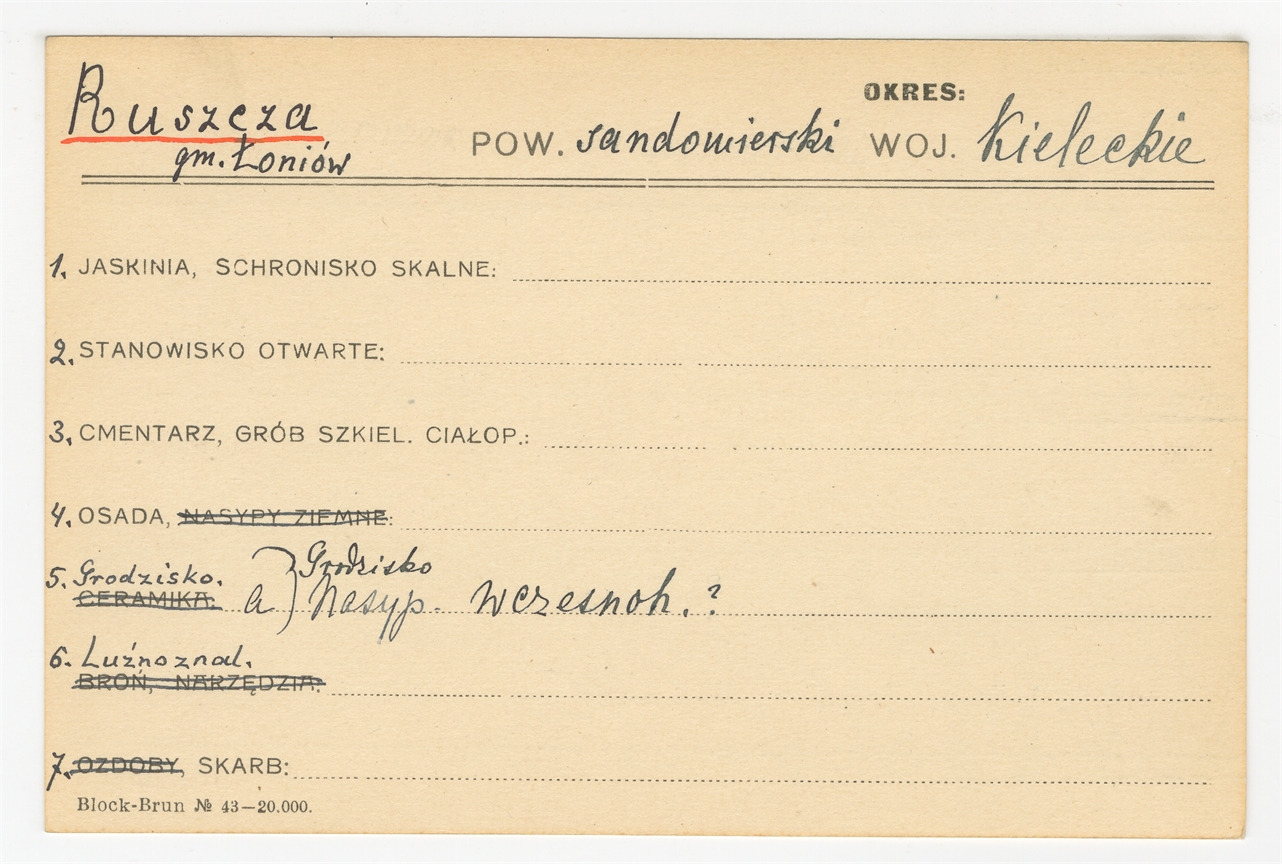 Ruszcza
gm. Łoniów
OKRES:
POW. sandomierski WOJ. Kieleckie
1. JASKINIA, SCHRONISKO SKALNE:
2. STANOWISKO OTWARTE:
3. CMENTARZ, GRÓB SZKIEL. CIAŁOP.:
4. OSADA, NASYPY ZIEMNE:
5. Grodzisko. Grodzisko
CERAMIKA: a) Nasyp. wczesnoh. ?
6. Luźno znal.
BROŃ, NARZĘDZIA:
7. OZDOBY, SKARB:
Block-Brun № 43—20.000.